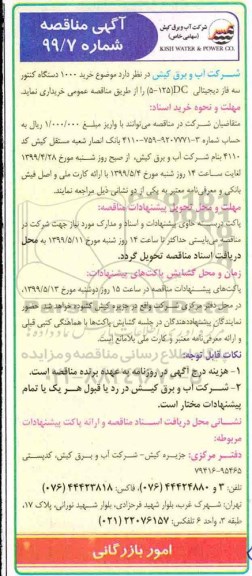 شرکت آب و برق کیش
(سهامی خاص)
KISH WATER & POWER CO.
آگهی مناقصه
شماره ۹۹/۷
شرکت آب و برق کیش در نظر دارد موضوع خرید ۱۰۰۰ دستگاه کنتور
سه فاز دیجیتالی DC(۵-۱۲۵) را از طریق مناقصه عمومی خریداری نماید.
مهلت و نحوه خرید اسناد:
متقاضیان شرکت در مناقصه می‌توانند با واریز مبلغ ۱/۰۰۰/۰۰۰ ریال به
حساب شماره بانک انصار شعبه مستقل کیش کد
۴۱۱۰ بنام شرکت آب و برق کیش، از صبح روز شنبه مورخ ۱۳۹۹/۴/۲۸
لغایت ساعت ۱۴ روز شنبه مورخ ۱۳۹۹/۵/۴ با ارائه کارت ملی و اصل فیش
بانکی و معرفی‌نامه معتبر به یکی از دو نشانی ذیل مراجعه نمایند.
مهلت و محل تحویل پیشنهادات مناقصه:
پاکت‌های حاوی پیشنهادات و اسناد و مدارک مورد نیاز جهت شرکت در
مناقصه می‌بایستی حداکثر تا ساعت ۱۴ روز شنبه مورخ ۱۳۹۹/۵/۱۱ به محل
دریافت اسناد مناقصه تحویل گردد.
زمان و محل گشایش پاکت‌های پیشنهادات:
پاکت‌های پیشنهادات مناقصه در ساعت ۱۵ روز دوشنبه مورخ ۱۳۹۹/۵/۱۳
در محل دفتر مرکزی شرکت واقع در جزیره کیش گشوده خواهد شد. حضور
نمایندگان پیشنهاددهندگان در جلسه گشایش پاکت‌ها با هماهنگی کتبی قبلی
و ارائه معرفی‌نامه معتبر و کارت ملی بلامانع است.
نکات قابل توجه:
۱- هزینه درج آگهی در روزنامه به عهده برنده مناقصه است.
۲- شرکت آب و برق کیش در رد یا قبول هر یک یا تمام
پیشنهادات مختار است.
نشانی محل دریافت اسناد مناقصه و ارائه پاکت پیشنهادات
مربوطه:
دفتر مرکزی: جزیره کیش- شرکت آب و برق کیش، کدپستی
۷۹۴۱۶-۹۵۴۶۵
تلفن: ۳ و ۴۴۴۲۴۸۸۰ (۰۷۶)، فاکس: ۴۴۴۲۳۸۱۸ (۰۷۶)
تهران: شهرک غرب، بلوار شهید فرحزادی، بلوار شهید نورانی، پلاک ۱۷،
طبقه ۳، واحد ۶ تلفکس: ۲۲۰۷۶۱۵۷ (۰۲۱)
امور بازرگانی